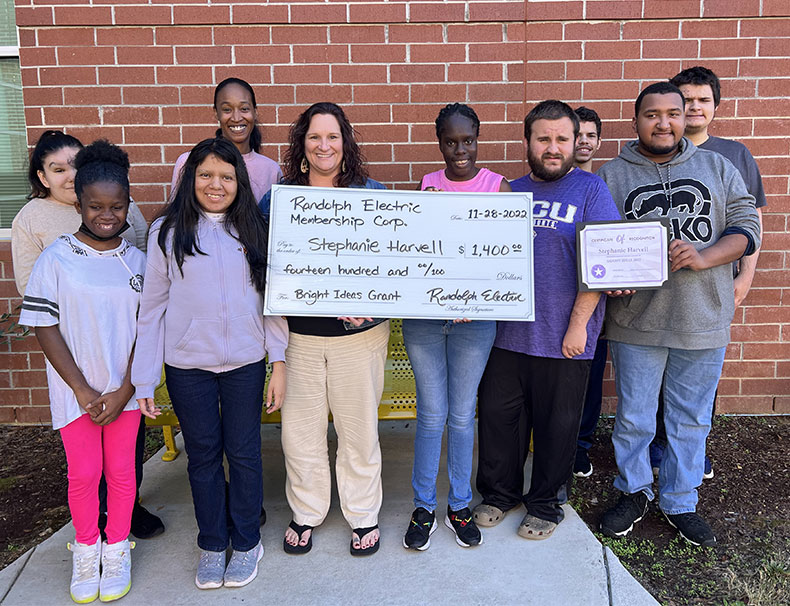 Randolph Electric
Membership Corp.
Date 11-28-2022
Pay to
the order of Stephanie Harvell $ 1,400 00
fourteen hundred and 00/100 Dollars
For Bright Ideas Grant Randolph Electric
Authorized Signature
CU
CERTIFICATE Of RECOGNITION
KO